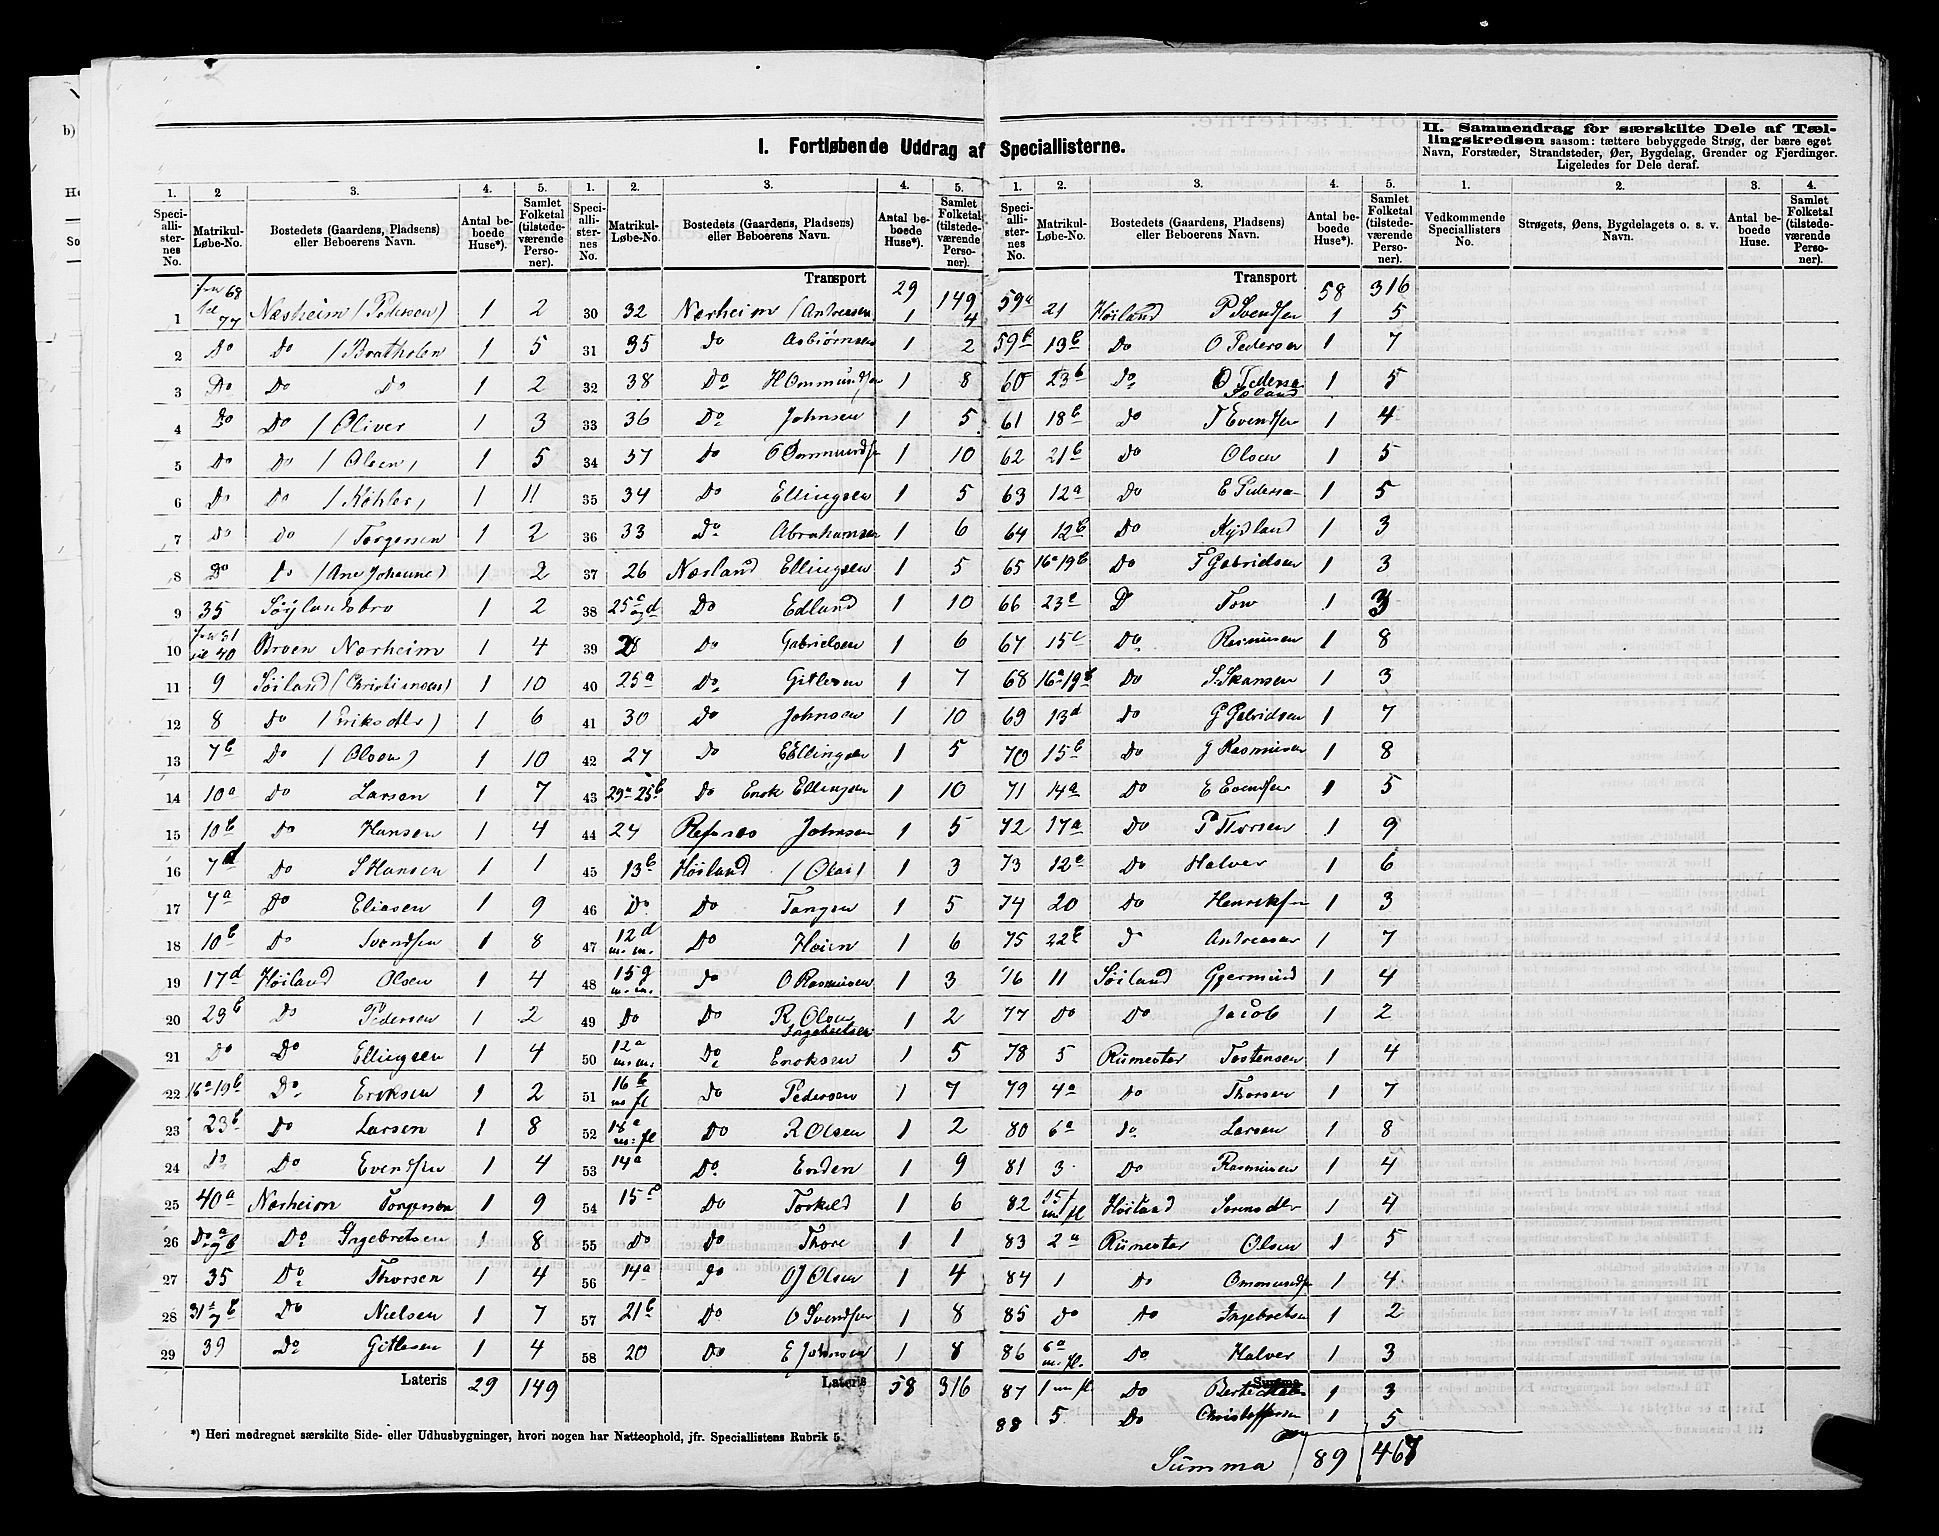 I. Fortløbende Uddrag af Speciallisterne.
II. Sammendrag for særskilte Dele af Tæl-
lingskredsen saasom: tættere bebyggede Strøg, der bære eget
Navn, Forstæder, Strandsteder, Øer, Bygdelag, Grender og Fjerdinger.
Ligeledes for Dele deraf.
1. 2 3. 4. 5.
Speci-alli-ster-nes No. Matrikul-Løbe-No. Bostedets (Gaardens, Pladsens) eller Beboerens Navn. Antal be-boede Huse*). Samlet Folketal (tilstede-værende Perso-ner).
1 fra 68 til 77 Næsheim (Pedersen) 1 2
2 Do Do (Bratholen 1 5
3 Do Do Do 1 2
4 Do Do (Oliver 1 3
5 Do Do (Olsen) 1 5
6 Do Do (Køhler) 1 11
7 Do Do (Torgersen 1 2
8 Do Do (Ane Johanne) 1 2
9 35 Søylandsbro 1 2
10 fra 31 til 40 Broen Nærheim 1 4
11 9 Søiland (Christiansen) 1 10
12 8 Do (Eriksdtr) 1 6
13 7b Do (Olsen) 1 10
14 10a Do Larsen 1 7
15 10b Do Hansen 1 4
16 7d Do S Hansen 1 1
17 7a Do Eliasen 1 9
18 10b Do Svendsen 1 8
19 17d Høiland Olsen 1 4
20 23b Do Pedersen 1 2
21 Do Do Ellingsen 1 4
22 16a 19b Do Eriksen 1 2
23 23b Do Larsen 1 8
24 Do Do Evendsen 1 4
25 40a Nærheim Torgersen 1 9
26 Do a og b Do Ingebretsen 1 8
27 35 Do Thorsen 1 4
28 31a og b Do Nielsen 1 7
29 39 Do Gitlesen 1 4
Lateris 29 149
1. 2. 3. 4. 5.
Speci-alli-ster-nes No. Matrikul-Løbe-No. Bostedets (Gaardens, Pladsens) eller Beboerens Navn. Antal be-boede Huse*). Samlet Folketal (tilstede-værende Perso-ner).
Transport 29 149
30 32 Nærheim (Andreasen 1 4
31 35 Do Asbiørnsen 1 2
32 38 Do H Ommundsen 1 8
33 36 Do Johnsen 1 5
34 37 Do O Ommundsen 1 10
35 34 Do Ellingsen 1 5
36 33 Do Abrahamsen 1 6
37 26 Nærland Ellingsen 1 5
38 25c og d Do Edland 1 10
39 28 Do Gabrielsen 1 6
40 25a Do Gitlesen 1 7
41 30 Do Johnsen 1 10
42 27 Do E Ellingsen 1 5
43 29a 25b Do Enok Ellingsen 1 10
44 24 Refsnes Johnsen 1 5
45 13b Høiland (Olai) 1 3
46 Do Do Tangen 1 5
47 12d m. m. Do Høien 1 6
48 15g m. m. Do O Rasmusen 1 3
49 Do Do R Olsen Ingebretsen 1 2
50 12a m. m. Do Enoksen 1 5
51 16b m fl Do Pedersen 1 7
52 18a m: fl Do R Olsen 1 2
53 14a Do Enden 1 9
54 15e Do Torkeld 1 6
55 Do Do Thore 1 1
56 14a Do O J Olsen 1 4
57 21b Do O Svendsen 1 8
58 20 Do E Johnsen 1 8
Lateris 58 316
1. 2. 3. 4. 5.
Speci-alli-ster-nes No. Matrikul-Løbe-No. Bostedets (Gaardens, Pladsens) eller Beboerens Navn. Antal be-boede Huse*). Samlet Folketal (tilstede-værende Perso-ner).
Transport 58 316
59a 21 Høiland P Svendsen 1 5
59b 13b Do O Pedersen 1 7
60 23b Do O Pedersen 1 5
61 18b Do T Evendsen 1 4
62 21b Do Olsen 1 5
63 12a Do E Pedersen 1 5
64 12b Do Kydland 1 3
65 16a 19b Do F Gabrielsen 1 3
66 23e Do Tow 1 3
67 15c Do Rasmusen 1 8
68 16a 19b Do S. Skansen 1 3
69 13d Do G Gabrielsen 1 7
70 15b Do J Rasmusen 1 8
71 14a Do E Evendsen 1 5
72 17a Do P Thorsen 1 9
73 12e Do Halver 1 6
74 20 Do Henriksen 1 3
75 22b Do Andreasen 1 7
76 11 Søiland Gjermund 1 4
77 Do Do Jacob 1 2
78 5 Riimestar Tostensen 1 4
79 4a Do Thorsen 1 7
80 6a Do Larsen 1 8
81 3 Do Rasmusen 1 4
82 15f m fl Høiland Sørensdtr 1 4
83 2a Riimestar Olsen 1 5
84 1 Do Ommundsen 1 4
85 Do Do Ingebretsen 1 2
86 6a m. fl. Do Halver 1 3
87 1 m fl Do 1 3
88 5. Do Christoffersen 1 5
Summa 89 467
1. 2. 3. 4.
Vedkommende Speciallisters No. Strøgets, Øens, Bygdelagets o. s. v. Navn. Antal be-boede Huse. Samlet Folketal (tilstede-værende Perso-ner).
*) Heri medregnet særskilte Side- eller Udhusbygninger, hvori nogen har Natteophold, jfr. Speciallistens Rubrik 5.